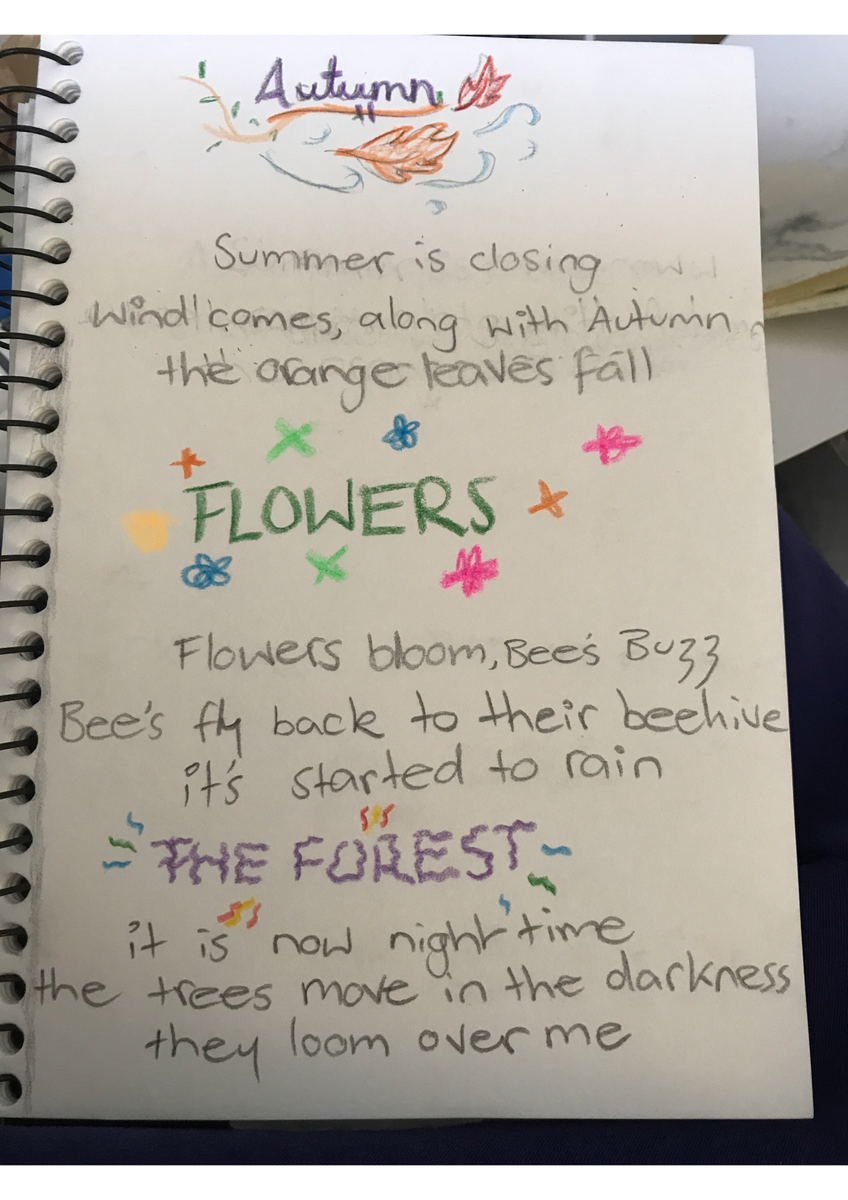 Autumn
Summer is closing
Wind comes, along with Autumn
the orange leaves fall
FLOWERS
Flowers bloom, Bee's Buzz
Bee's fly back to their beehive
it's started to rain
THE FOREST
it is now night time
the trees move in the darkness
they loom over me